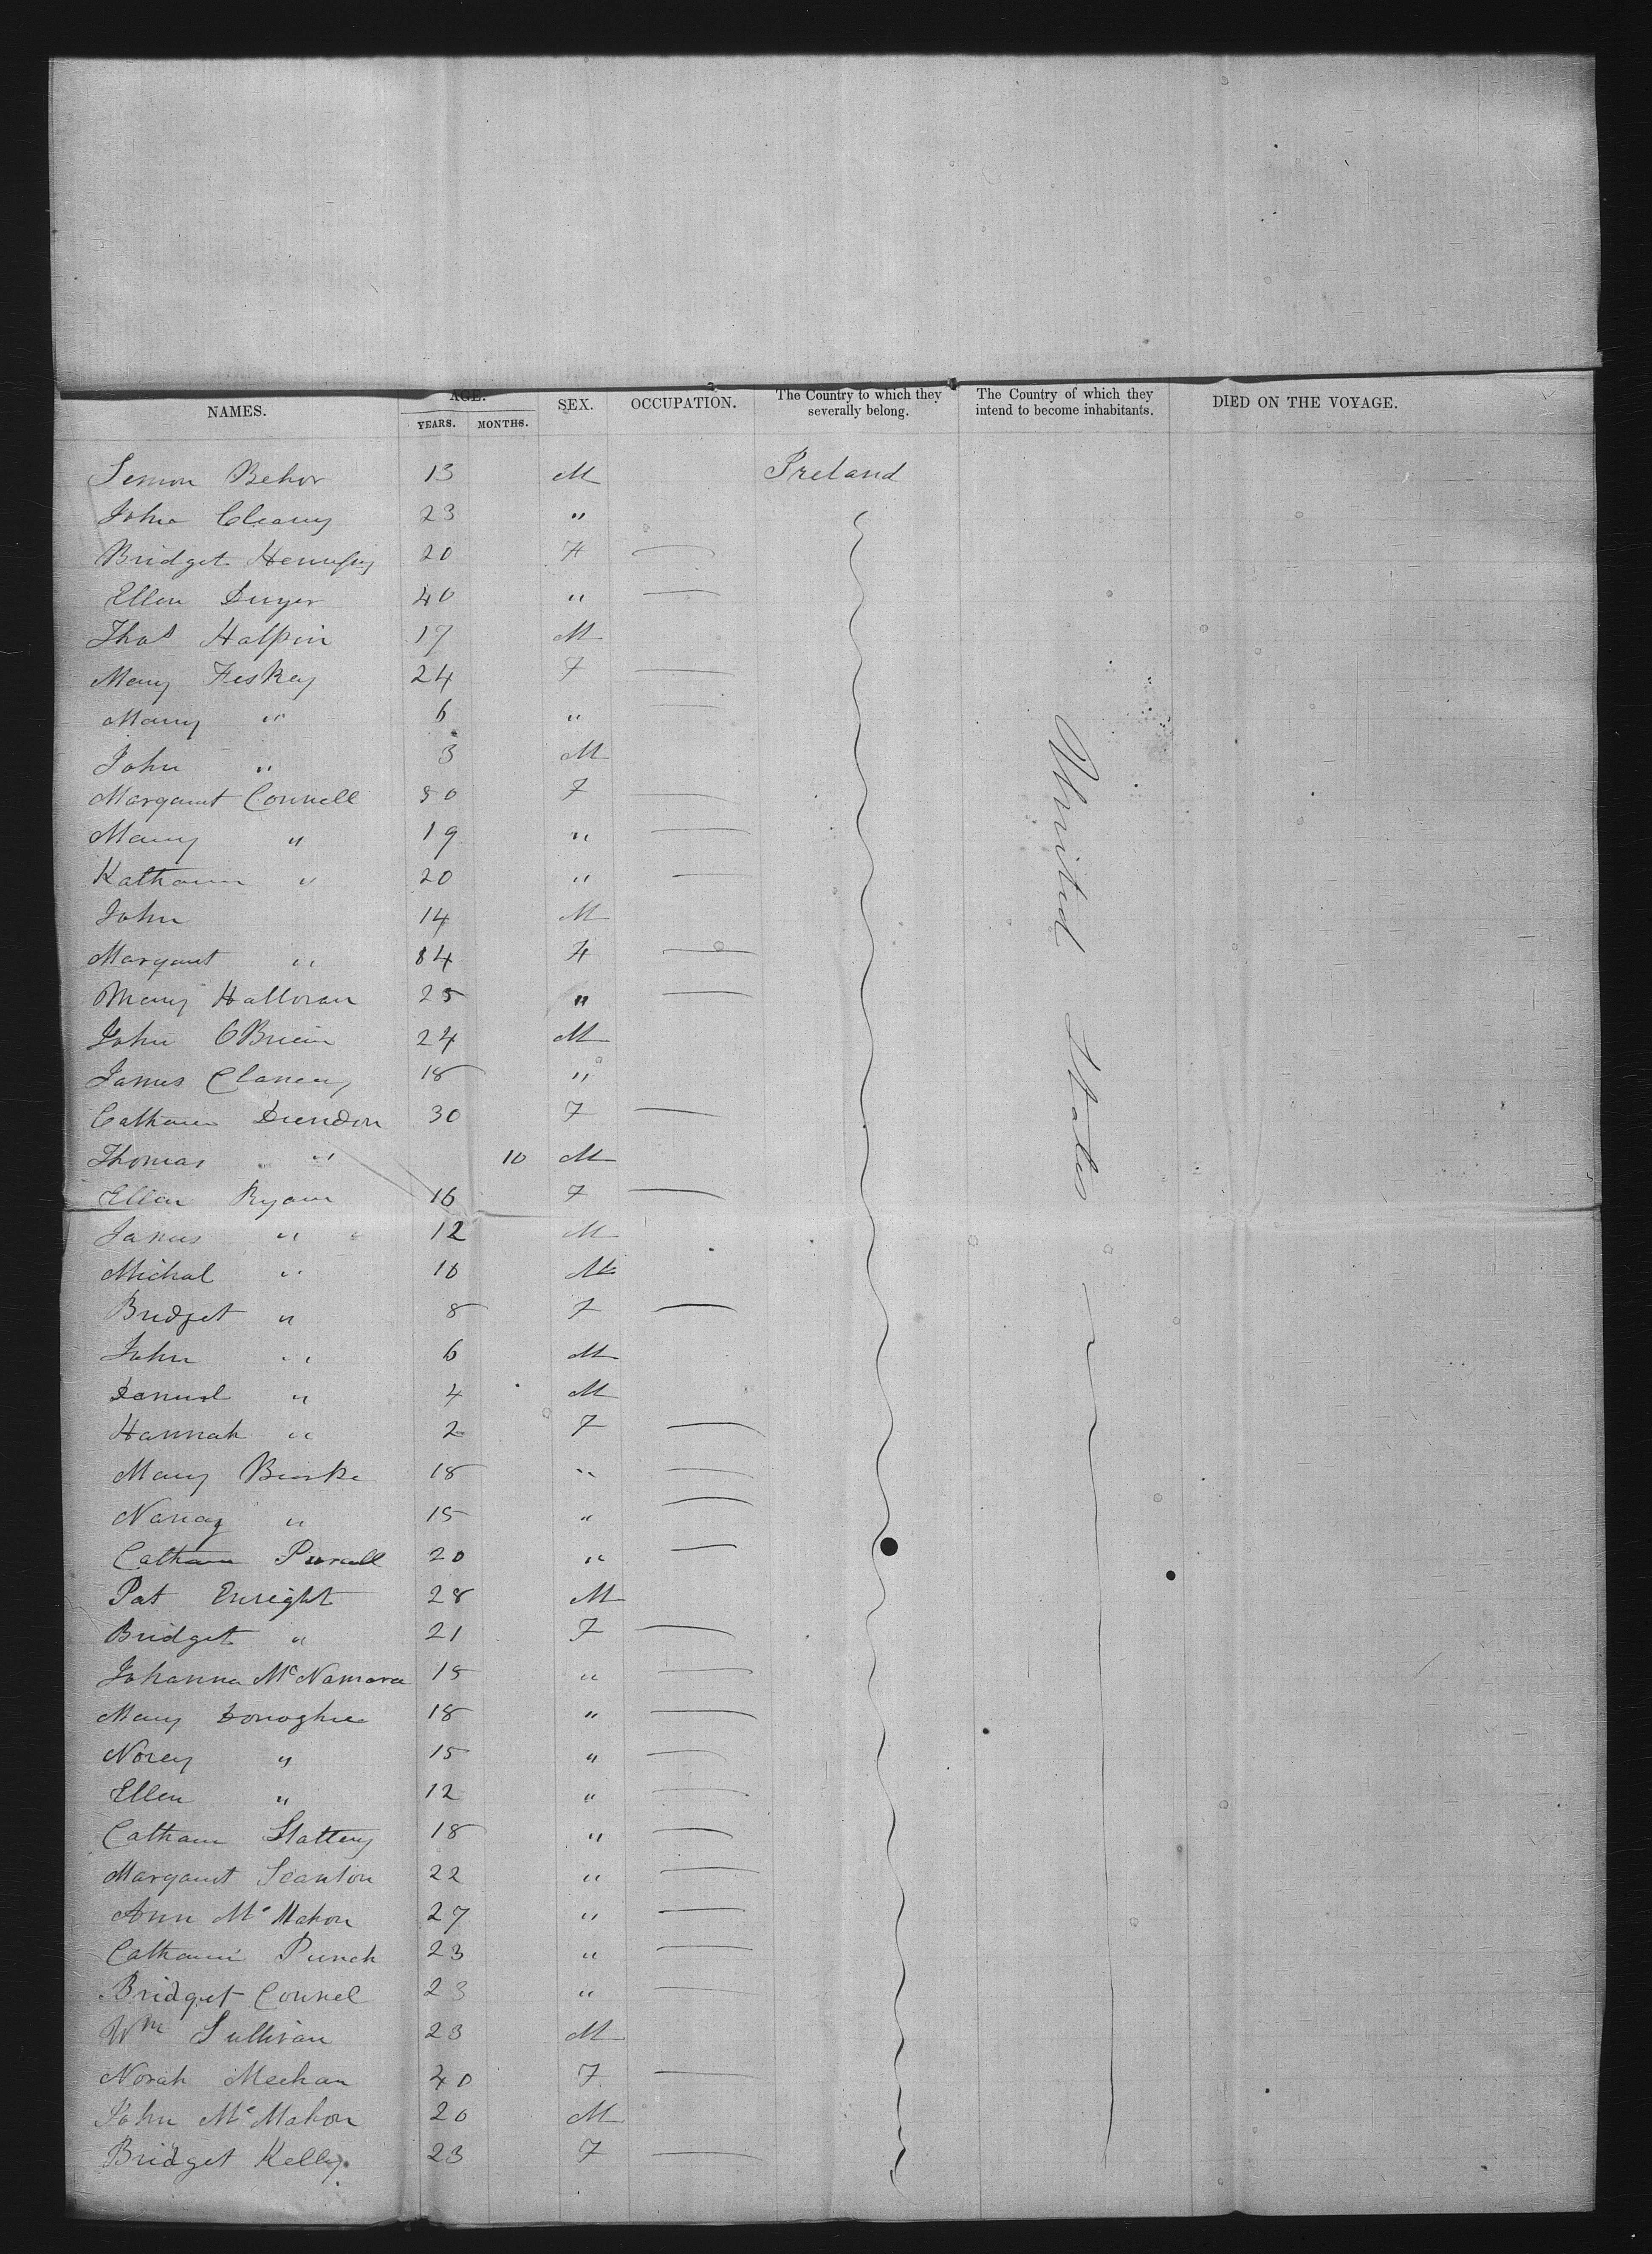 NAMES. AGE. YEARS. MONTHS. SEX. OCCUPATION. The Country to which they severally belong. The Country of which they intend to become inhabitants. DIED ON THE VOYAGE.
Semon Behor 13 M Ireland
John Cleary 23 "
Bridget Hennessy 20 F
Ellen Dwyer 40 "
Thos Halpin 17 M
Mary Feskey 24 F
Mary " 6 "
John " 3 M
Margaret Connell 50 F
Mary " 19 "
Katharin " 20 "
John 14 M
Margaret " 84 F
Mary Halloran 25 "
John OBrien 24 M
James Clancy 18 "
Catharin Dundon 30 F
Thomas " 10 M
Ellen Ryan 16 F
James " 12 M
Michal " 10 M
Bridget " 8 F
John " 6 M
Daniel " 4 M
Hannah " 2 F
Mary Burke 18 "
Nancy " 15 "
Catharin Purcell 20 "
Pat Enright 28 M
Bridget " 21 F
Johanna McNamara 15 "
Mary Donoghue 18 "
Norey " 15 "
Ellen " 12 "
Catharin Slattery 18 "
Margaret Scanlon 22 "
Ann McMahon 27 "
Catharin Punch 23 "
Bridget Connel 23 "
Wm Sullivan 23 M
Norah Meehan 40 F
John McMahon 20 M
Bridget Kelly 23 F
United States